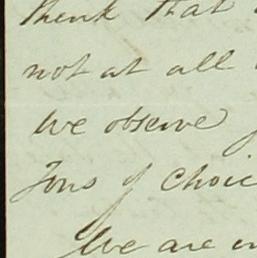 think that
not at all
We observe
Tons of Choic
We are